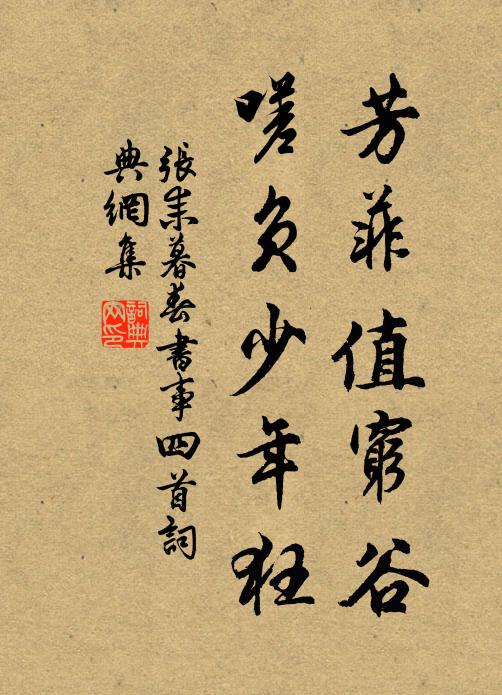 芳菲值窮谷
嗟負少年狂
張耒暮春書事四首詞
典網集
詞典
网印